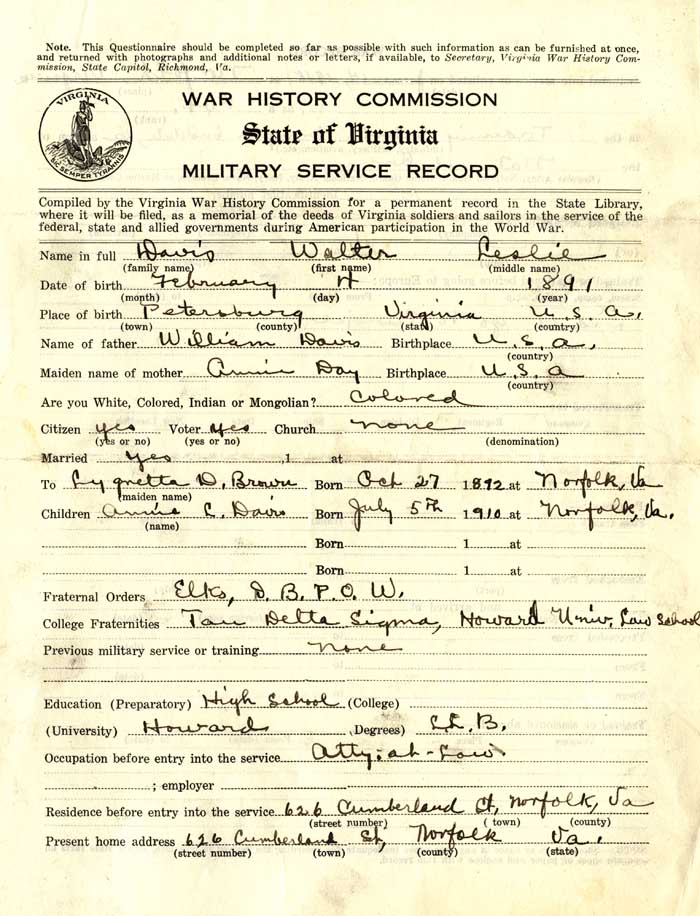 Note. This Questionnaire should be completed so far as possible with such information as can be furnished at once,
and returned with photographs and additional notes or letters, if available, to Secretary, Virginia War History Com-
mission, State Capitol, Richmond, Va.
VIRGINIA
SIC SEMPER TYRANNIS
WAR HISTORY COMMISSION
State of Virginia
MILITARY SERVICE RECORD
Compiled by the Virginia War History Commission for a permanent record in the State Library,
where it will be filed, as a memorial of the deeds of Virginia soldiers and sailors in the service of the
federal, state and allied governments during American participation in the World War.
Name in full Davis Walter Leslie
(family name) (first name) (middle name)
Date of birth February 4 1891
(month) (day) (year)
Place of birth Petersburg Virginia U. S. A.
(town) (county) (state) (country)
Name of father William Davis Birthplace U. S. A.
(country)
Maiden name of mother Annie Day Birthplace U. S. A
(country)
Are you White, Colored, Indian or Mongolian? Colored
Citizen yes Voter yes Church none
(yes or no) (yes or no) (denomination)
Married yes , 1 at
To D. Brown Born Oct 27 1892 at Norfolk, Va
(maiden name)
Children Annie C. Davis Born July 5th 1910 at Norfolk, Va.
(name)
Born 1 at
Born 1 at
Fraternal Orders Elks, B. P. O. W.
College Fraternities Tau Delta Sigma, Howard Univ. Law School
Previous military service or training none
Education (Preparatory) High School (College)
(University) Howard (Degrees) LL. B.
Occupation before entry into the service Atty-at-Law
; employer
Residence before entry into the service 626 Cumberland St, Norfolk, Va
(street number) (town) (county)
Present home address 626 Cumberland St, Norfolk Va.
(street number) (town) (county) (state)